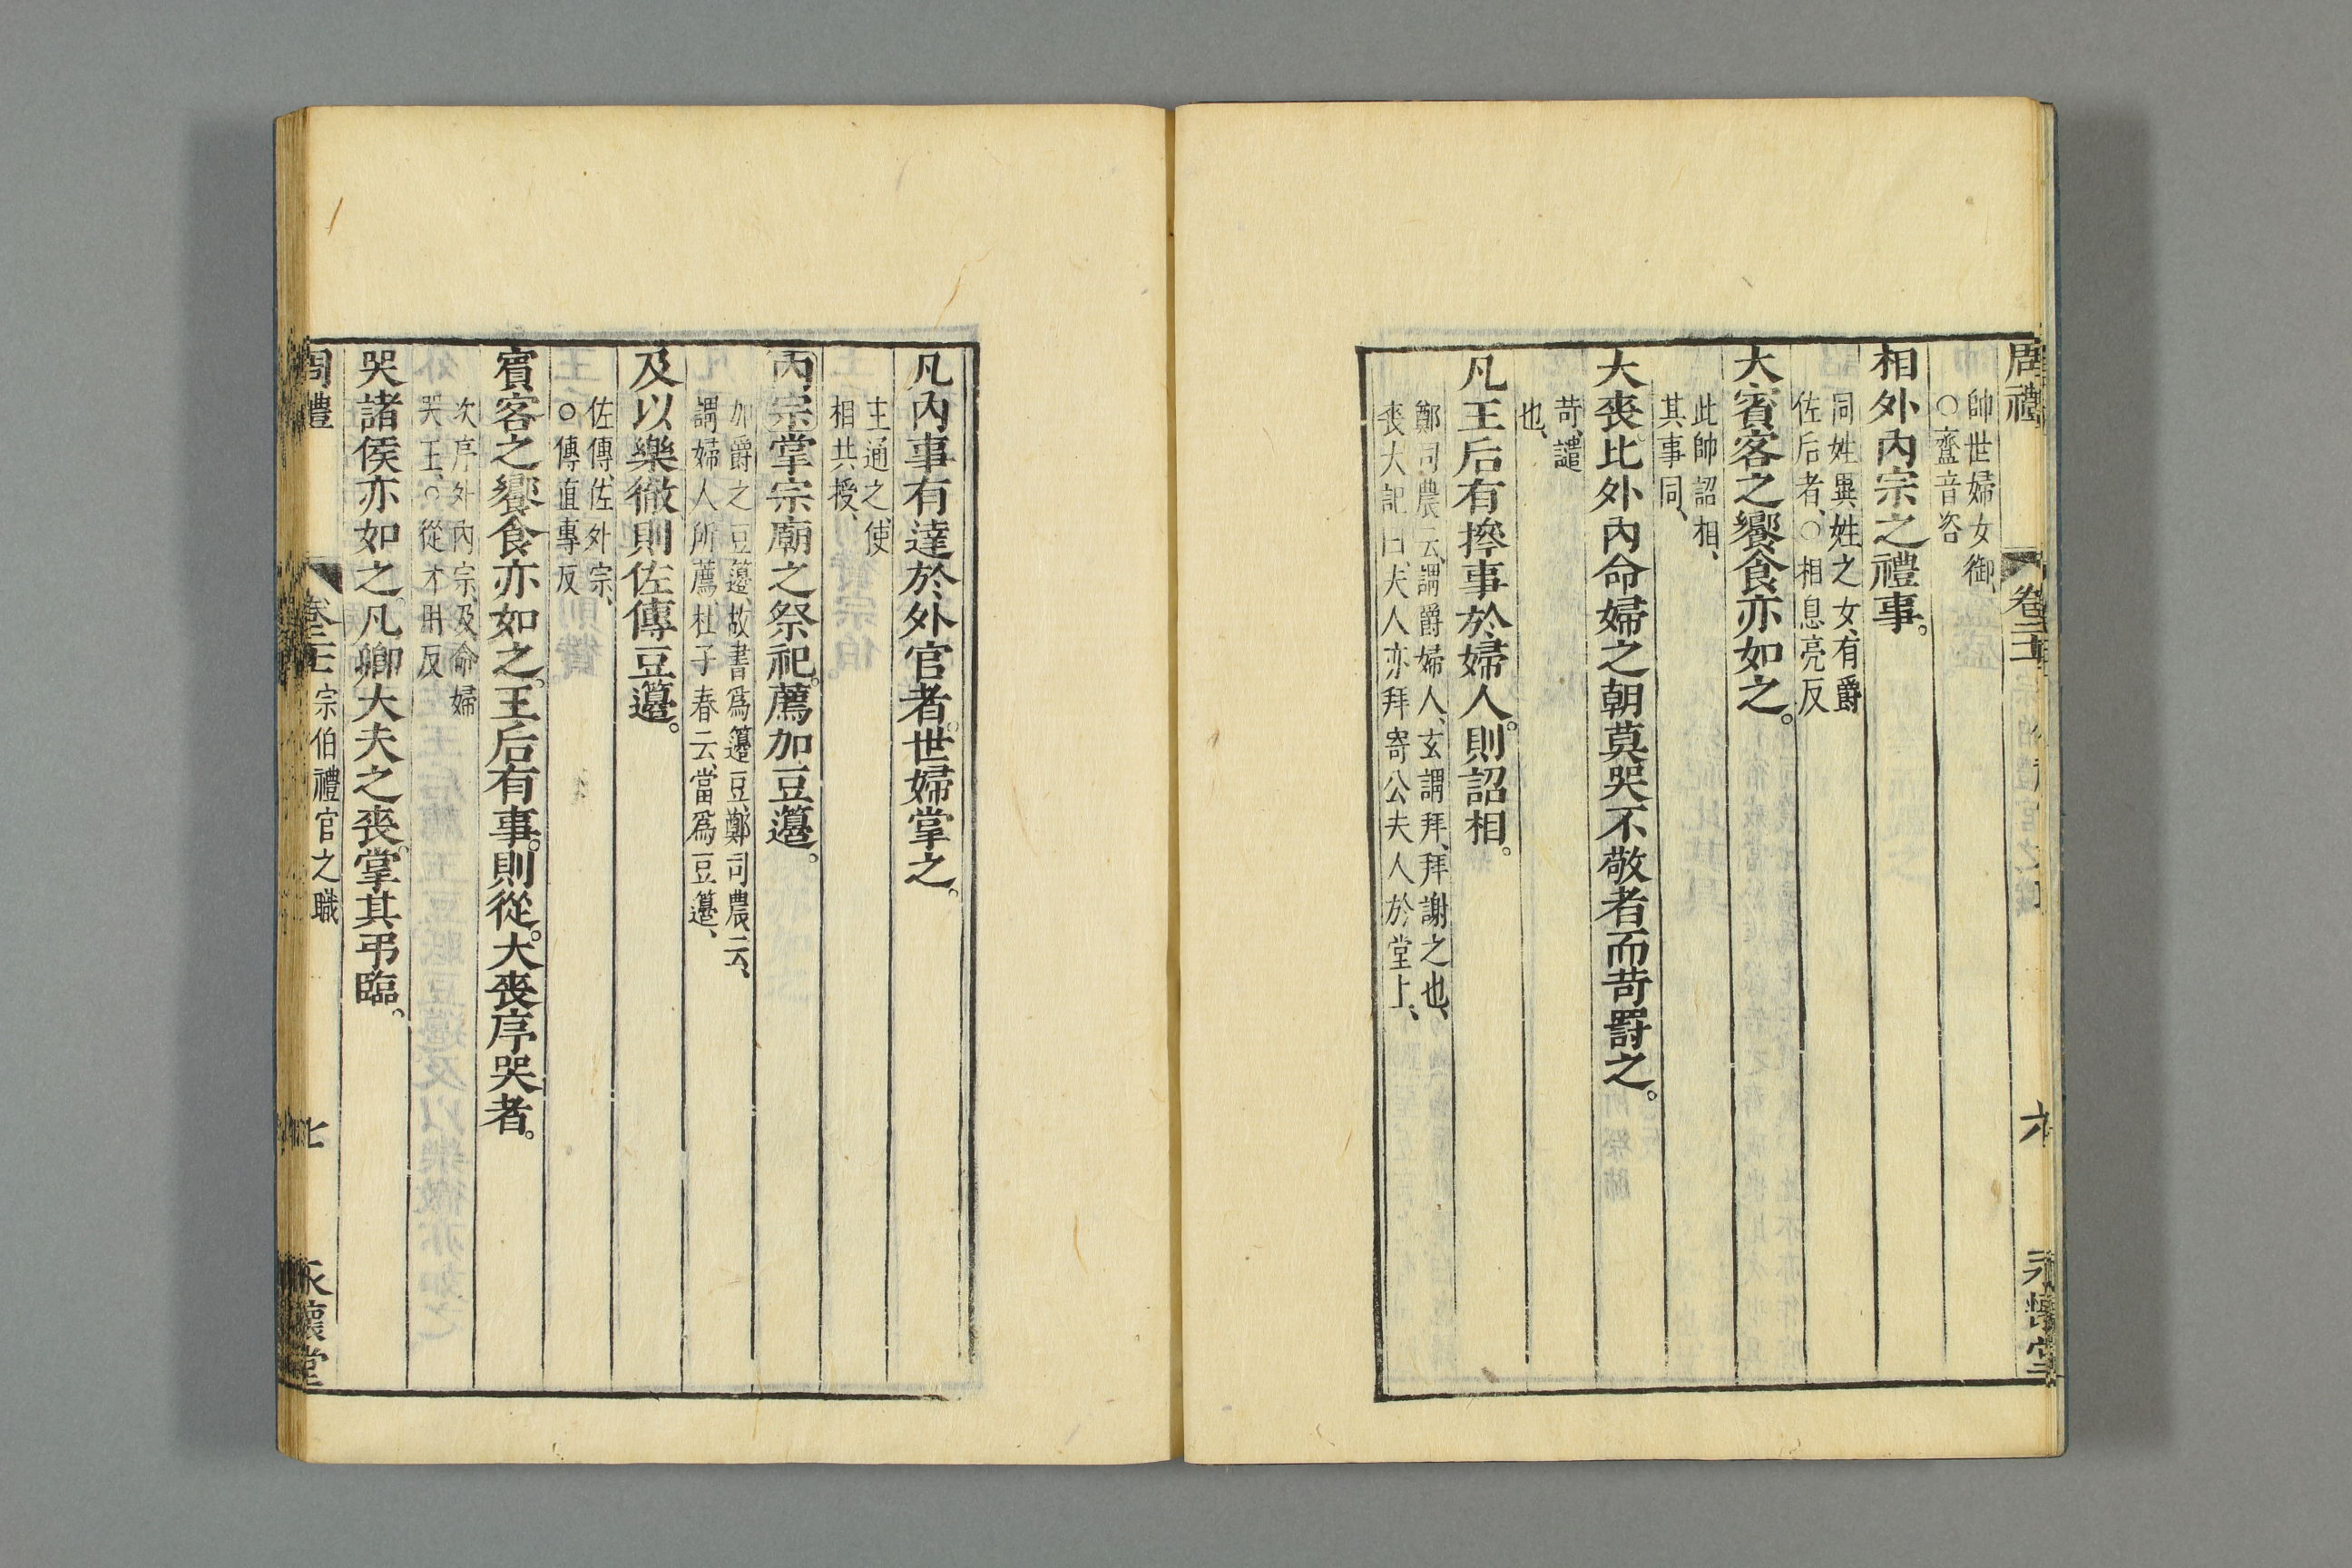 周禮 卷二十二 六 永懷堂
帥世婦女御、
○齍音咨
相外內宗之禮事。
同姓異姓之女、有爵
佐后者、○相息亮反
大賓客之饗食亦如之。
此帥詔相、
其事同、
大喪。比外內命婦之朝莫哭不敬者而苛罰之。
苛、譴
也、
凡王后有㩢事於婦人。則詔相。
鄭司農云、謂爵婦人、玄謂拜、拜謝之也、
喪大記曰、夫人亦拜寄公夫人於堂上、
凡內事有達於外官者。世婦掌之。
主通之、使
相共授、
內宗掌宗廟之祭祀。薦加豆籩。
加爵之豆籩、故書爲籩豆、鄭司農云、
謂婦人所薦、杜子春云、當爲豆籩、
及以樂徹則佐傳豆籩。
佐傳、佐外宗、
○傳直專反
賓客之饗食亦如之。王后有事。則從。大喪序哭者。
次序外內宗、及命婦
哭王、○從才用反
哭諸侯亦如之。凡卿大夫之喪。掌其弔臨。
周禮 宗伯禮官之職 七 永懷堂